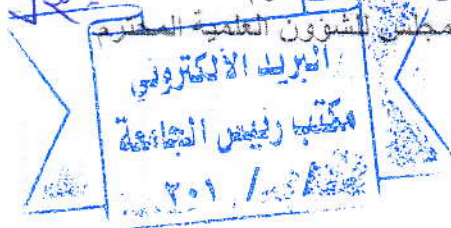 مجلس للشؤون العلمية المحترم
البريد الألكتروني
مكتب رئيس الجامعة
/ / ٢٠١